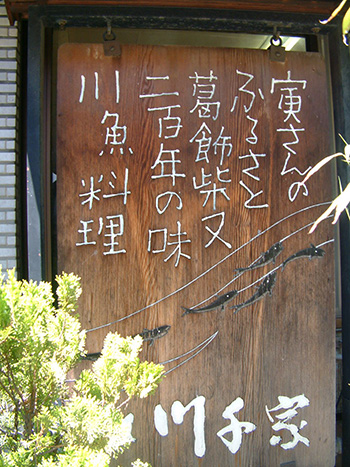 寅さんの
ふるさと
葛飾柴又
二百年の味
川魚料理
川千家